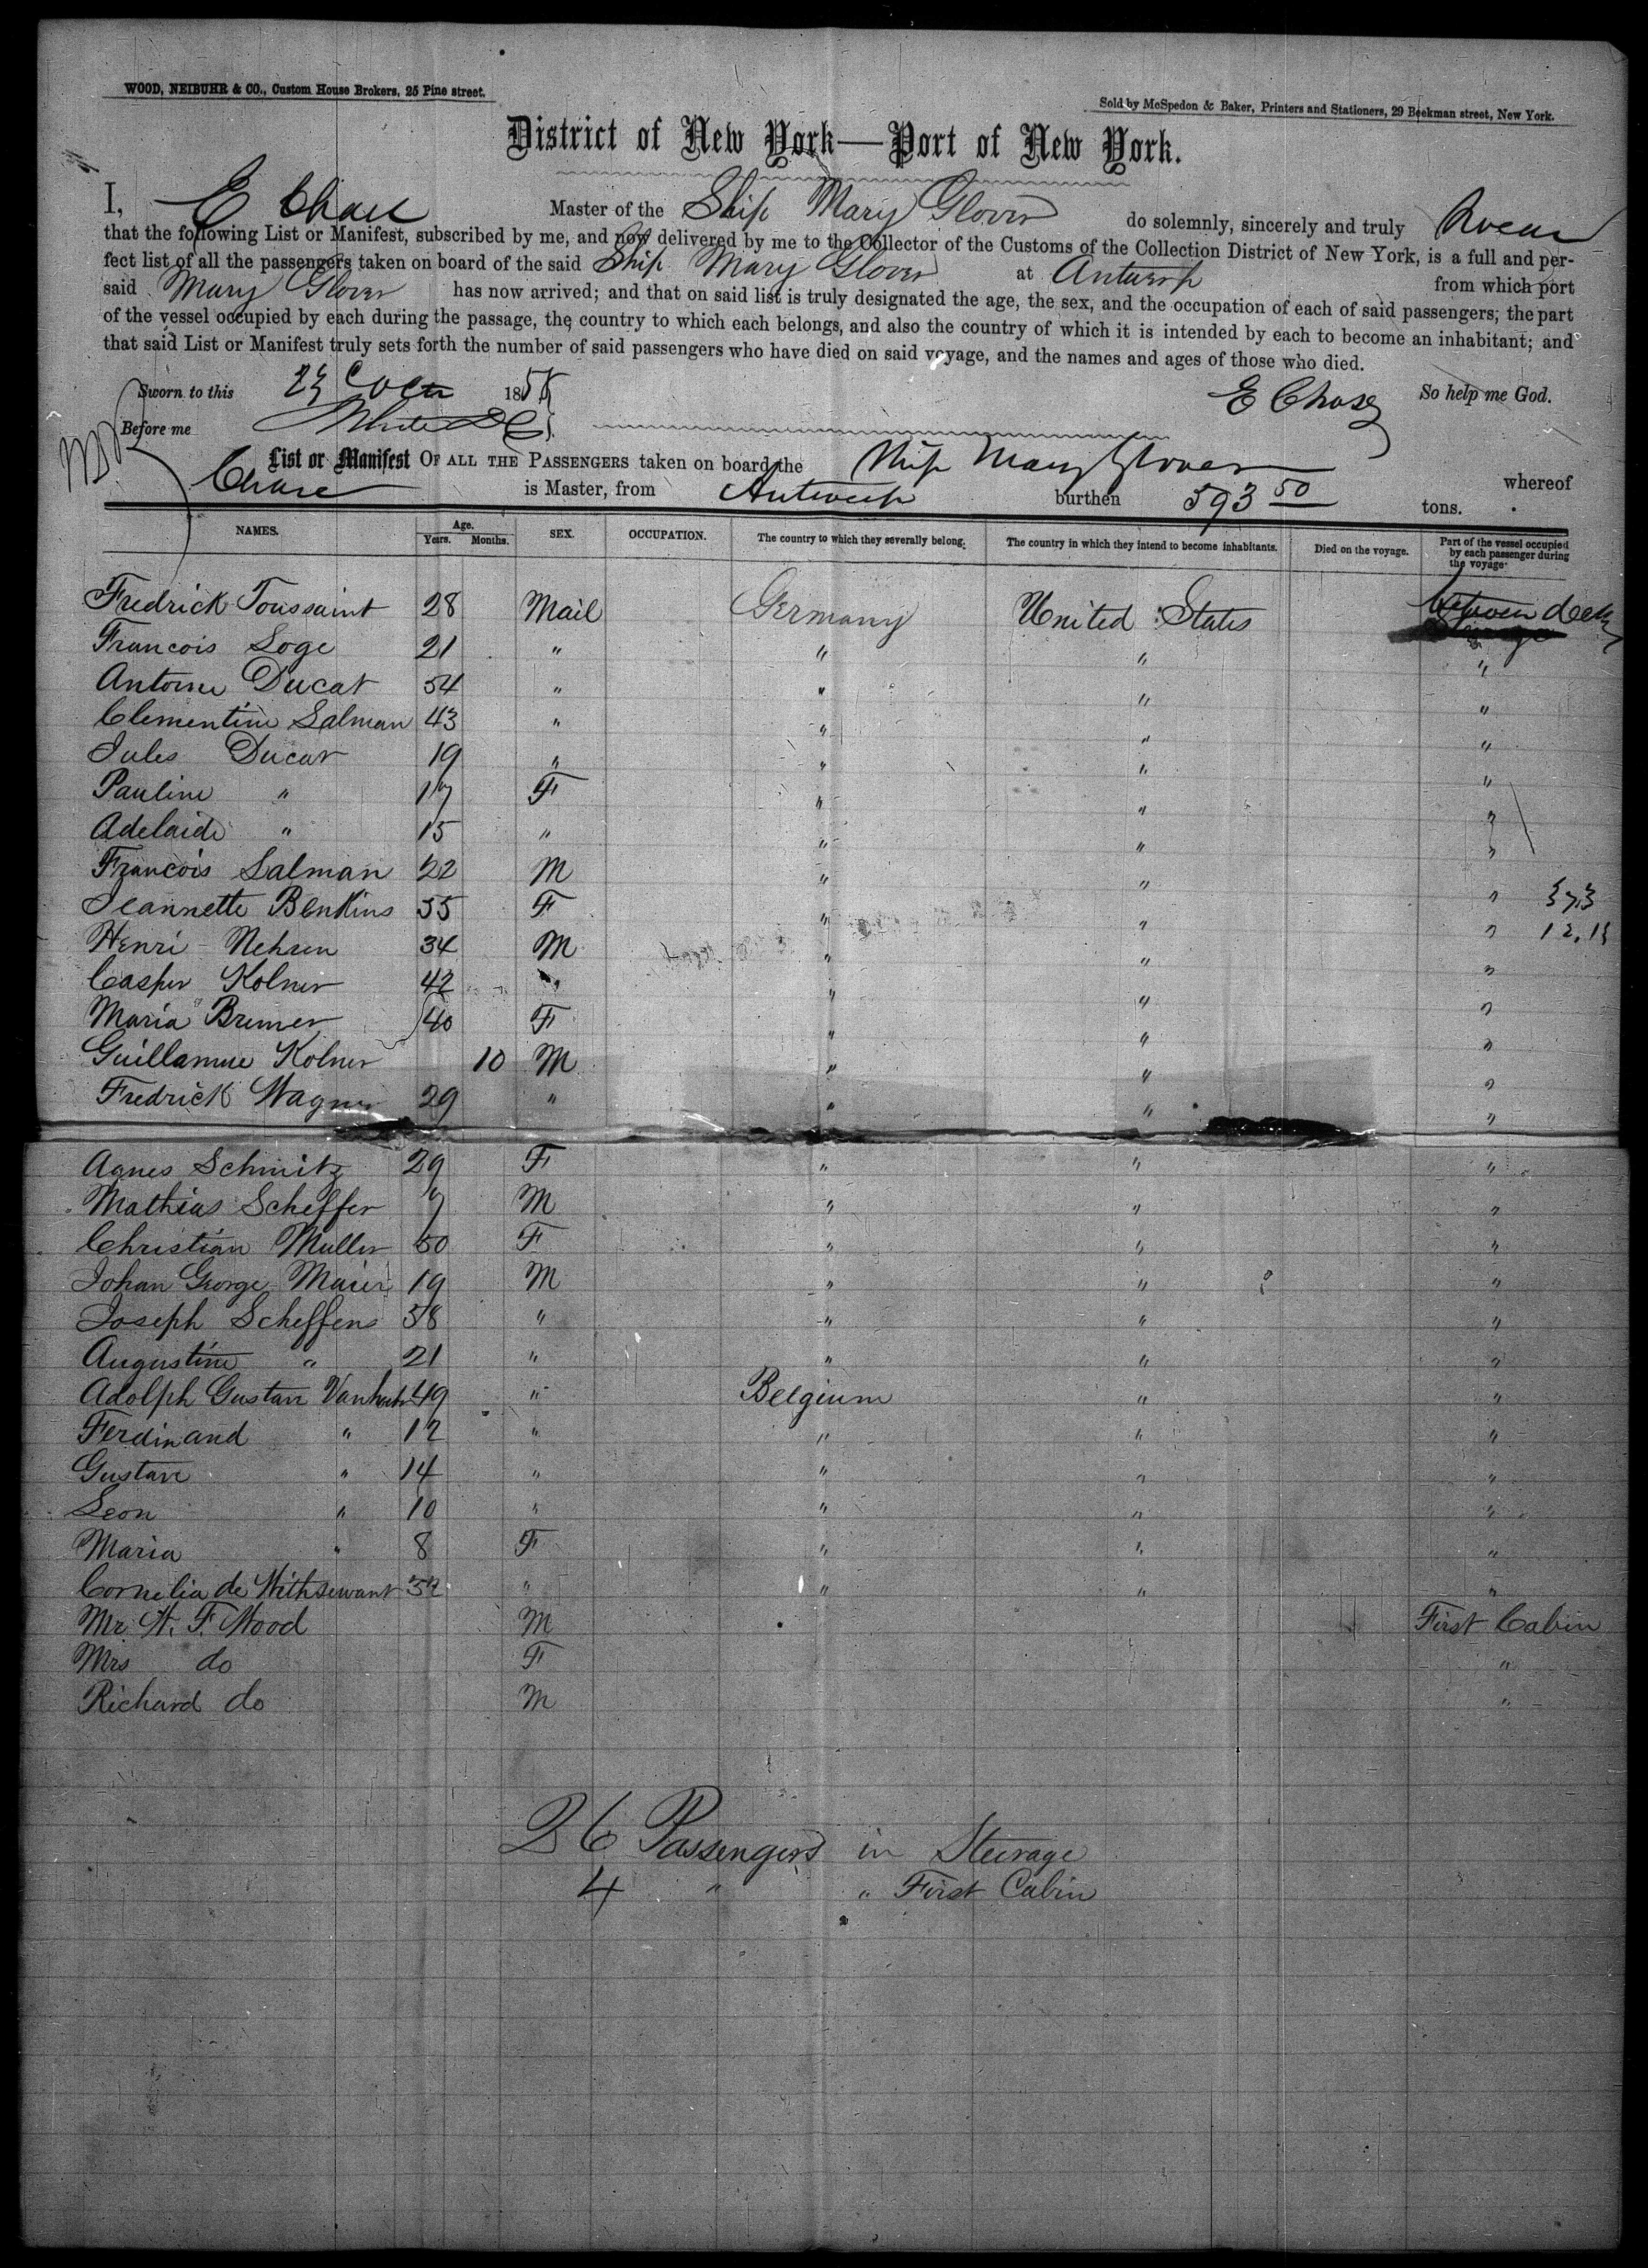 WOOD, NEIBUHR & CO., Custom House Brokers, 25 Pine street.
Sold by McSpedon & Baker, Printers and Stationers, 29 Beekman street, New York.
District of New York—Port of New York.
I, E Chase Master of the Ship Mary Glover do solemnly, sincerely and truly Swear
that the following List or Manifest, subscribed by me, and now delivered by me to the Collector of the Customs of the Collection District of New York, is a full and per-
fect list of all the passengers taken on board of the said Ship Mary Glover at Antwerp from which port
said Mary Glover has now arrived; and that on said list is truly designated the age, the sex, and the occupation of each of said passengers; the part
of the vessel occupied by each during the passage, the country to which each belongs, and also the country of which it is intended by each to become an inhabitant; and
that said List or Manifest truly sets forth the number of said passengers who have died on said voyage, and the names and ages of those who died.
Sworn to this 23 Octr 185 E Chase So help me God.
Before me
List or Manifest OF ALL THE PASSENGERS taken on board the Ship Mary Glover whereof
Chase is Master, from Antwerp burthen 593 50 tons.
NAMES. Age. Years. Months. SEX. OCCUPATION. The country to which they severally belong. The country in which they intend to become inhabitants. Died on the voyage. Part of the vessel occupied by each passenger during the voyage.
Fredrick Toussaint 28 Mail Germany United States between deck
Francois Loge 21 " " " "
Antoine Ducat 54 " " " "
Clementine Salman 43 " " " "
Jules Ducat 19 " " " "
Pauline " 17 F " " "
Adelaide " 15 " " " "
Francois Salman 22 M " " "
Jeannette Benkins 55 F " " "
Henri Nehsen 34 M " " "
Casper Kolner 42 " " " "
Maria Bremer 40 F " " "
Guillamue Kolner 10 M " " "
Fredrick Wagner 29 " " " "
Agnes Schmitz 29 F " " "
Mathias Scheffer 7 M " " "
Christian Muller 50 F " " "
Johan George Maier 19 M " " "
Joseph Scheffens 58 " " " "
Augustine " 21 " " " "
Adolph Gustave 49 " Belgium " "
Ferdinand " 12 " " " "
Gustave " 14 " " " "
Leon " 10 " " " "
Maria " 8 F " " "
Cornelia de " " " "
Mr W. F. Wood M First Cabin
Mrs do F "
Richard do M "
26 Passengers in Steerage
4 " " First Cabin